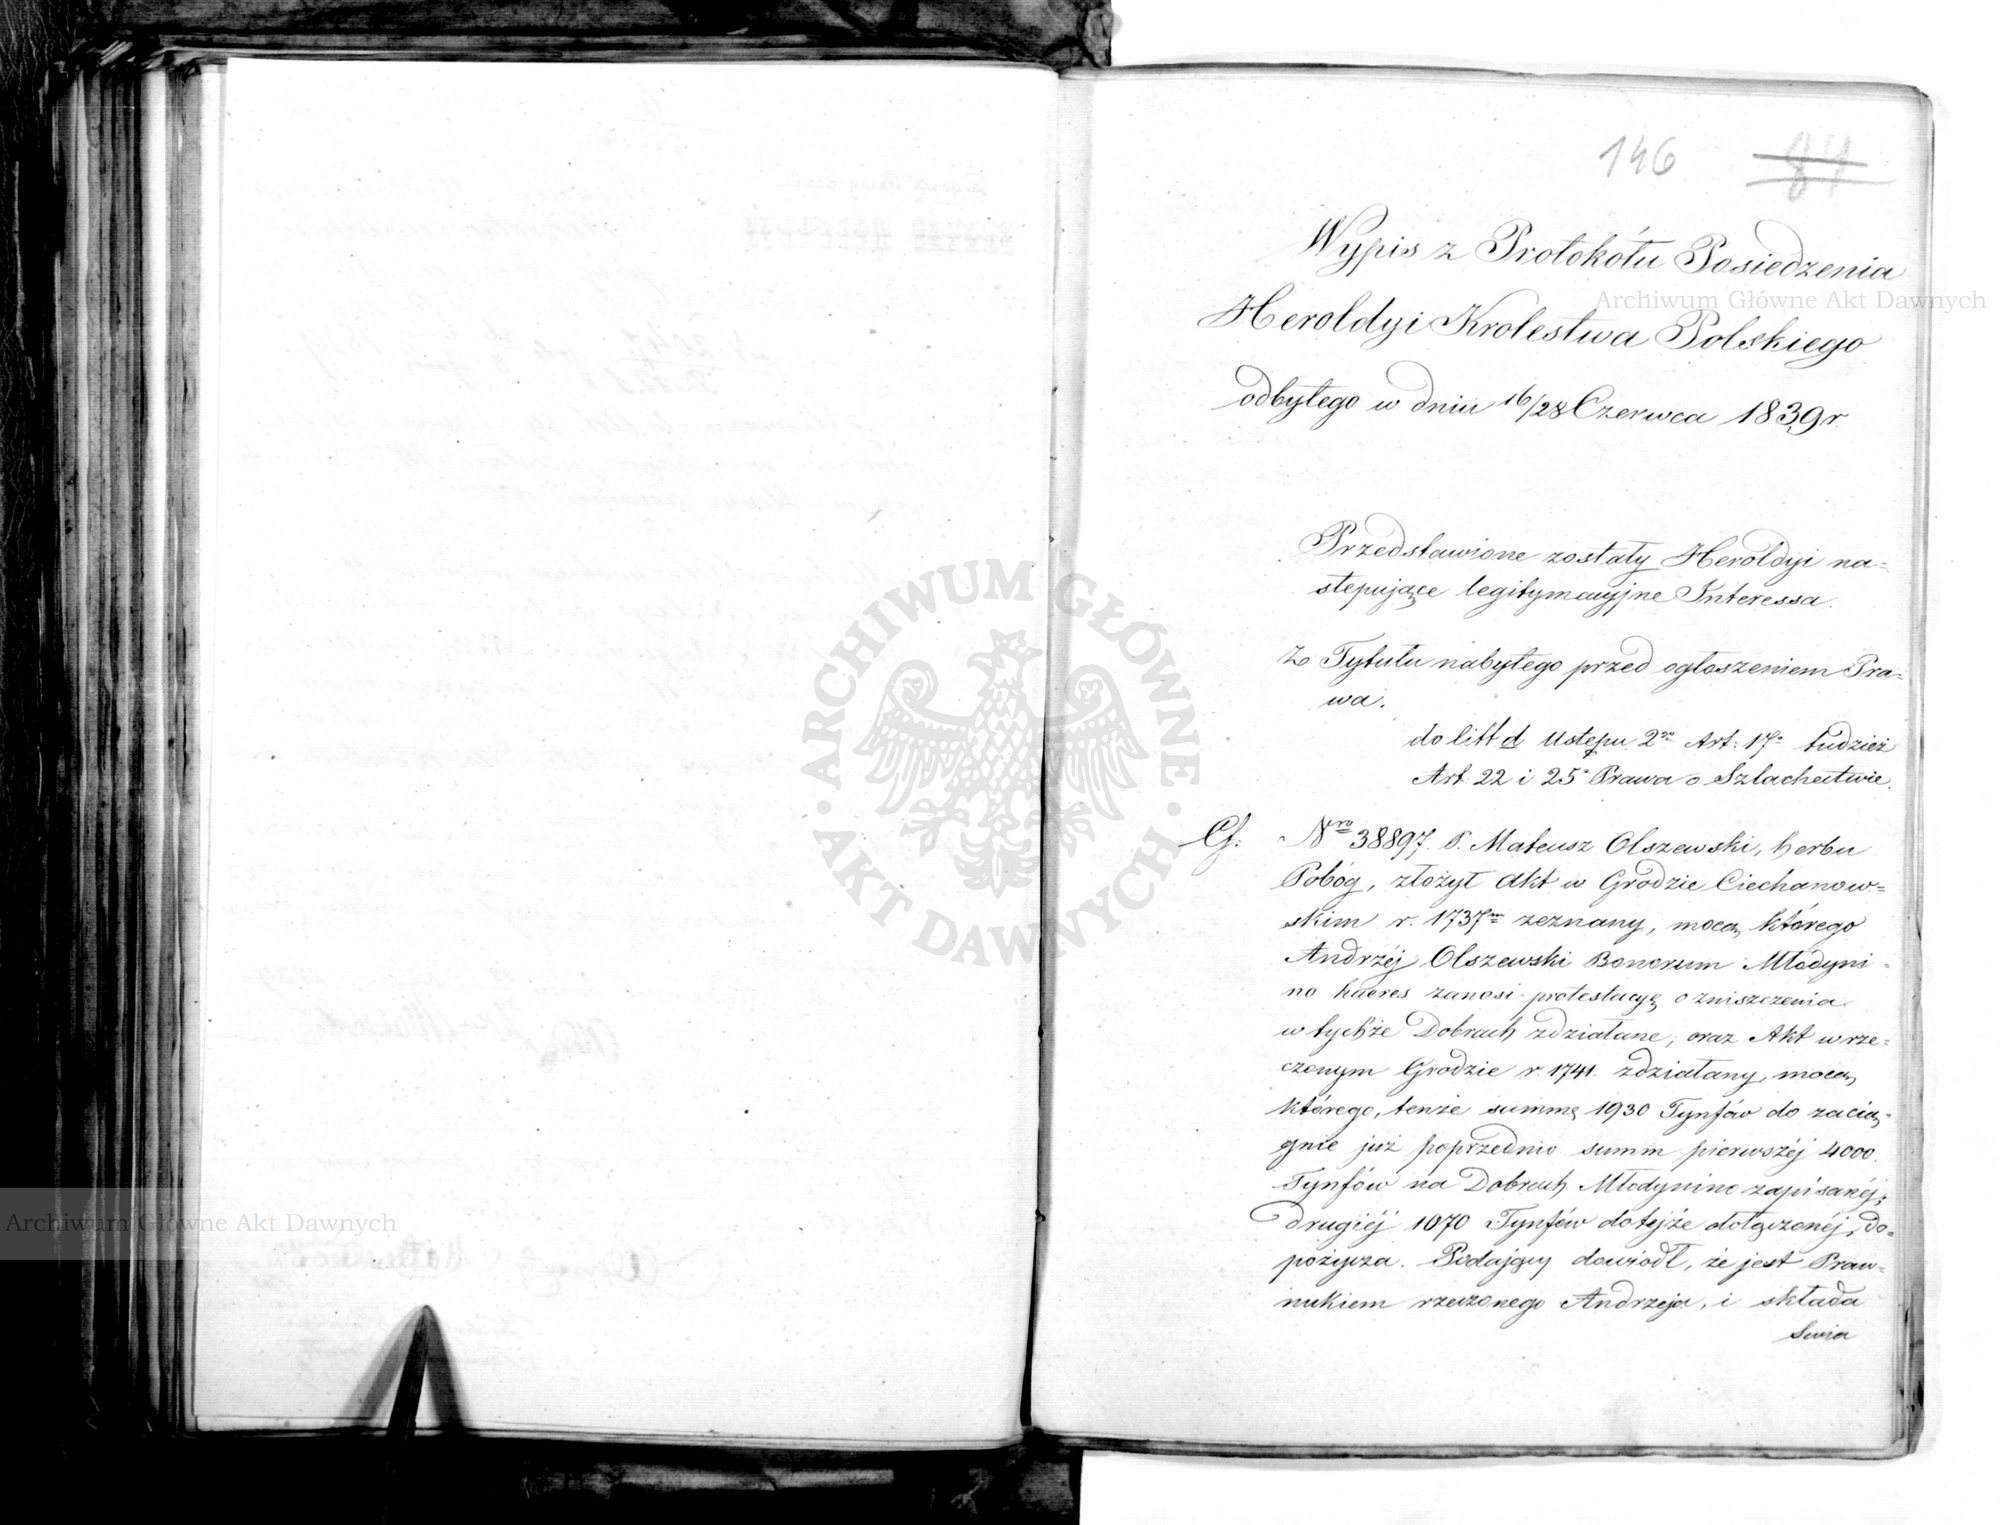 146 84
Wypis z Protokółu Posiedzenia
Heroldyi Krolestwa Polskiego
odbytego w dniu 16/28 Czerwca 1839 r.
Przedstawione zostały Heroldyi na=
stepujące legitymacyjne Interessa.
Z Tytułu nabytego przed ogłoszeniem Pra=
wa.
do litt d Ustępu 2go Art: 17o tudzież
Art 22 i 25o Prawa o Szlachectwie.
Nro 38897. P. Mateusz Olszewski, herbu
Pobóg, złożył Akt w Grodzie Ciechanow=
skim r. 1737m zeznany, mocą którego
Andrzéj Olszewski Bonorum Młodyni=
no haeres zanosi protestacyę o zniszczenia
w tychże Dobrach zdziałane; oraz Akt w rze=
czonym Grodzie r. 1741. zdziałany, mocą
którego, tenże summę 1930 Tynfów do zacią=
gnie już poprzednio summ pierwszéj 4000.
Tynfów na Dobrach Młodynino zapisanéj;
drugiéj 1070 Tynfów do tejże dołączonéj, do=
pożycza. Podający dowiódł, że jest Praw=
nukiem rzeczonego Andrzeja, i składa
Swia
Archiwum Główne Akt Dawnych
Archiwum Główne Akt Dawnych
ARCHIWUM GŁÓWNE
AKT DAWNYCH